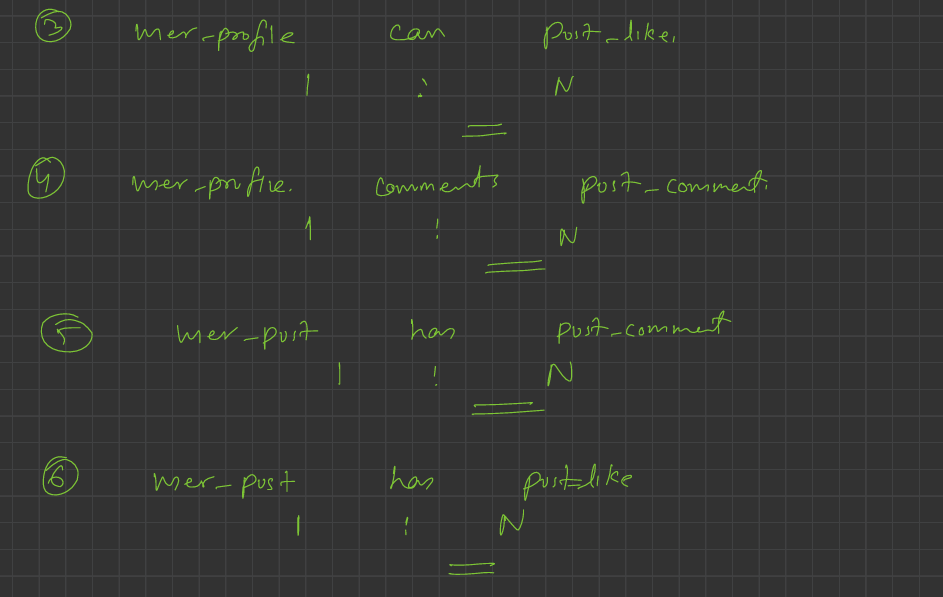 3 user-profile can post-like.
1 : N
4 user-profile. comments post-comment.
1 : N
5 user-post has post-comment
1 : N
6 user-post has post-like
1 : N